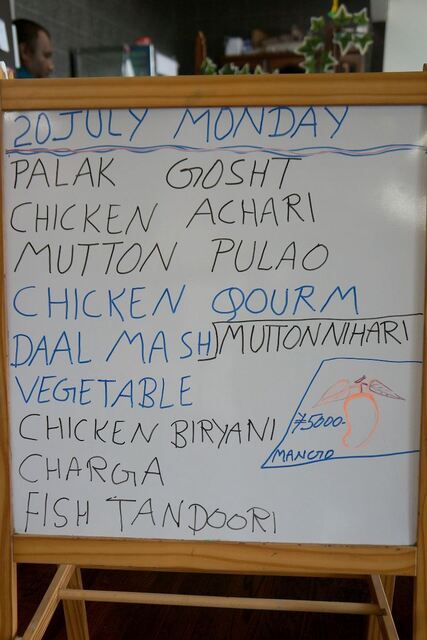 20 JULY MONDAY
PALAK GOSHT
CHICKEN ACHARI
MUTTON PULAO
CHICKEN QOURM
DAAL MASH
MUTTON NIHARI
VEGETABLE
CHICKEN BIRYANI
¥5000-
MANGO
CHARGA
FISH TANDOORI